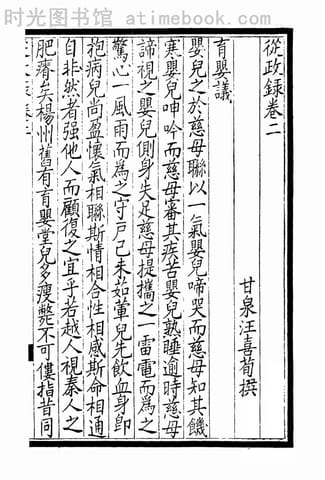 时光图书馆 - atimebook.com
從政録卷二
甘泉汪喜荀撰
育嬰議
嬰兒之於慈母聯以一氣嬰兒啼哭而慈母知其饑
寒嬰兒呻吟而慈母審其疾苦嬰兒熟睡逾時慈母
諦視之嬰兒側身失足慈母提攜之一雷電而為之
驚心一風雨而為之守戶己未茹葷兒先飲血身即
抱病兒尚盈懷氣相聯斯情相合性相感斯命相通
自非然者强他人而顧復之宜乎若越人視秦人之
肥瘠矣楊州舊有育嬰堂兒多瘦斃不可僂指昔同
时光图书馆 www.atimebook.com